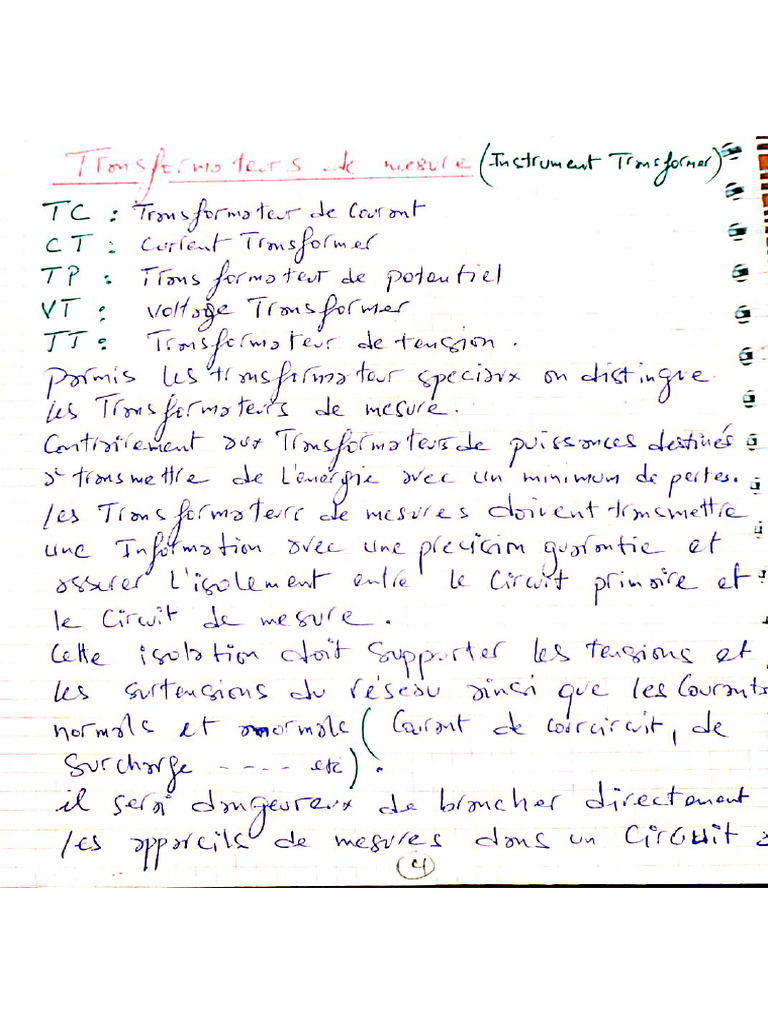 Transformateurs de mesure (Instrument Transformer)
TC : Transformateur de Courant
CT : Current Transformer
TP : Transformateur de potentiel
VT : voltage Transformer
TT : Transformateur de tension .
parmis les transformateur speciaux on distingue
les Transformateurs de mesure.
Contrairement aux Transformateurs de puissances destinés
à transmettre de l'énergie avec un minimum de pertes.
les Transformateurs de mesures doivent transmettre
une Information avec une precision guarantie et
assurer l'isolement entre le Circuit primaire et
le Circuit de mesure .
Cette isolation doit Supporter les tensions et
les surtensions du réseau ainsi que les Courants
normals et anormals ( Courant de courcircuit, de
Surcharge ---- etc) .
il sera dangeureux de brancher directement
les appareils de mesures dans un Circuit
4